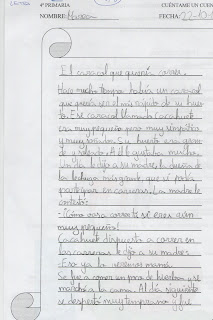 4º PRIMARIA
CUÉNTAME UN CUEN
NOMBRE:
FECHA: 22-10-
El caracol que quería correr.
Hace mucho tiempo había un caracol
que quería ser el más rápido de su huer
to. Ese caracol llamado Cacahuete
era muy pequeño pero muy simpático
y muy soñador. Su huerto era grande
de y soleado. A él le gustaba mucho.
Un día le dijo a su madre, la dueña de
la lechuga más grande, que si podía
participar en carreras. La madre le
contestó:
-¡Cómo vas a correr tú si eres aún
muy pequeño!
Cacahuete dispuesto a correr en
las carreras le dijo a su madre:
-Eso ya lo veremos mamá.
Se fue a comer un poco de lechuga y se
marchó a la cama. Al día siguiente
se despertó muy temprano y fue